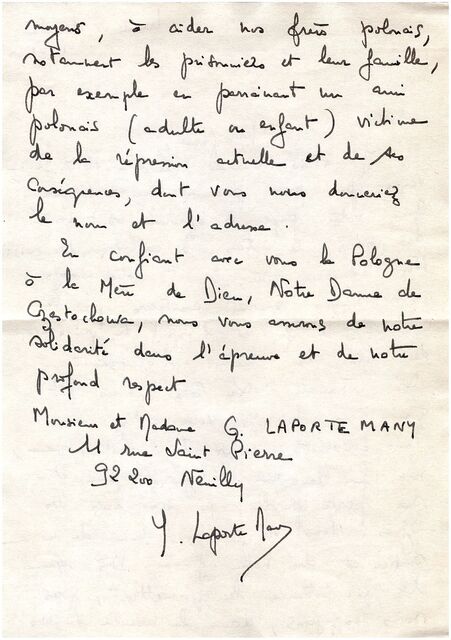 moyens, à aider nos frères polonais,
notamment les prisonniers et leur famille,
par exemple en parrainant un ami
polonais (adulte ou enfant) victime
de la répression actuelle et de ses
conséquences, dont vous nous donneriez
le nom et l'adresse.
En confiant avec vous la Pologne
à la Mère de Dieu, Notre Dame de
Częstochowa, nous vous assurons de notre
solidarité dans l'épreuve et de notre
profond respect
Monsieur et Madame G. LAPORTE MANY
11 rue Saint Pierre
92 200 Neuilly
Y. Laporte Many